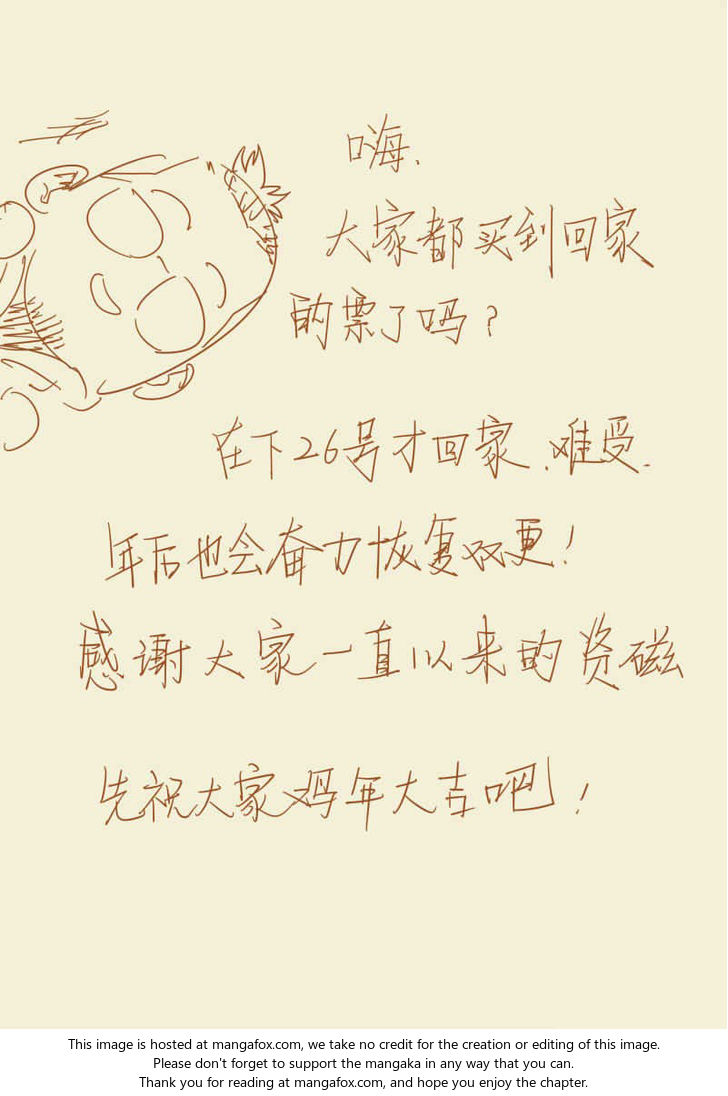 嗨.
大家都买到回家
的票了吗?
在下26号才回家.难受.
年后也会奋力恢复双更!
感谢大家一直以来的资磁
先祝大家鸡年大吉吧!
This image is hosted at mangafox.com, we take no credit for the creation or editing of this image.
Please don't forget to support the mangaka in any way that you can.
Thank you for reading at mangafox.com, and hope you enjoy the chapter.